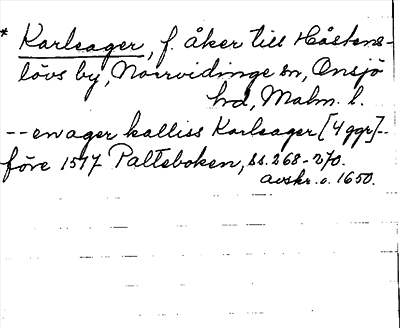 * Karlsager, f. åker till Håstens-
lövs by, Norrvidinge sn, Onsjö
hd, Malm. l.
-- en ager kalliss Karlsager [4 ggr]--
före 1517 Palteboken, ss. 268-270.
avskr. o. 1650.